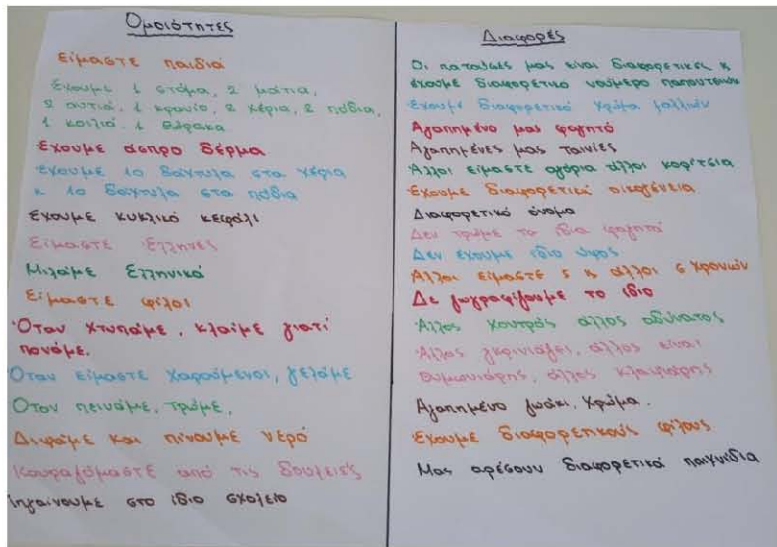 Ομοιότητες
Είμαστε παιδιά
Έχουμε 1 στόμα, 2 μάτια,
2 αυτιά, 1 κρανίο, 2 χέρια, 2 πόδια,
1 κοιλιά 1 θώρακα
Έχουμε άσπρο δέρμα
Έχουμε 10 δάχτυλα στα χέρια
κ 10 δάχτυλα στα πόδια
Έχουμε κυκλικό κεφάλι
Είμαστε Έλληνες
Μιλάμε Ελληνικά
Είμαστε φίλοι
Όταν χτυπάμε, κλαίμε γιατί
πονάμε.
Όταν είμαστε χαρούμενοι, γελάμε
Όταν πεινάμε, τρώμε,
Διψάμε και πίνουμε νερό
Κουραζόμαστε από τις δουλειές
Πηγαίνουμε στο ίδιο σχολείο
Διαφορές
Οι πατούσες μας είναι διαφορετικές κ
έχουμε διαφορετικό νούμερο παπουτσιών
Έχουμε διαφορετικό χρώμα μαλλιών
Αγαπημένο μας φαγητό
Αγαπημένες μας ταινίες
Άλλοι είμαστε αγόρια άλλοι κορίτσια
Έχουμε διαφορετική οικογένεια
Διαφορετικό όνομα
Δεν τρώμε το ίδιο φαγητό
Δεν έχουμε ίδιο ύψος
Άλλοι είμαστε 5 κ άλλοι 6 χρονών
Δε ζωγραφίζουμε το ίδιο
Άλλος χοντρός άλλος αδύνατος
Άλλος γκρινιάζει, άλλος είναι
θυμωσιάρης, άλλος κλαψιάρης
Αγαπημένο ζωάκι, χρώμα.
Έχουμε διαφορετικούς φίλους
Μας αρέσουν διαφορετικά παιχνίδια